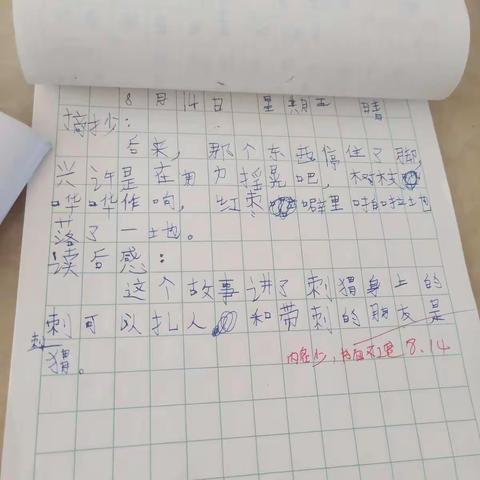 8月14日 星期五 晴
摘抄：
后来，那个东西停住了脚，
兴许是在用力摇晃吧，树枝
哗哗作响，红枣噼里啪啦地
落了一地。
读后感：
这个故事讲了刺猬身上的
刺可以扎人和带刺的朋友是
刺
猬。
内容少，书面不工整 8.14